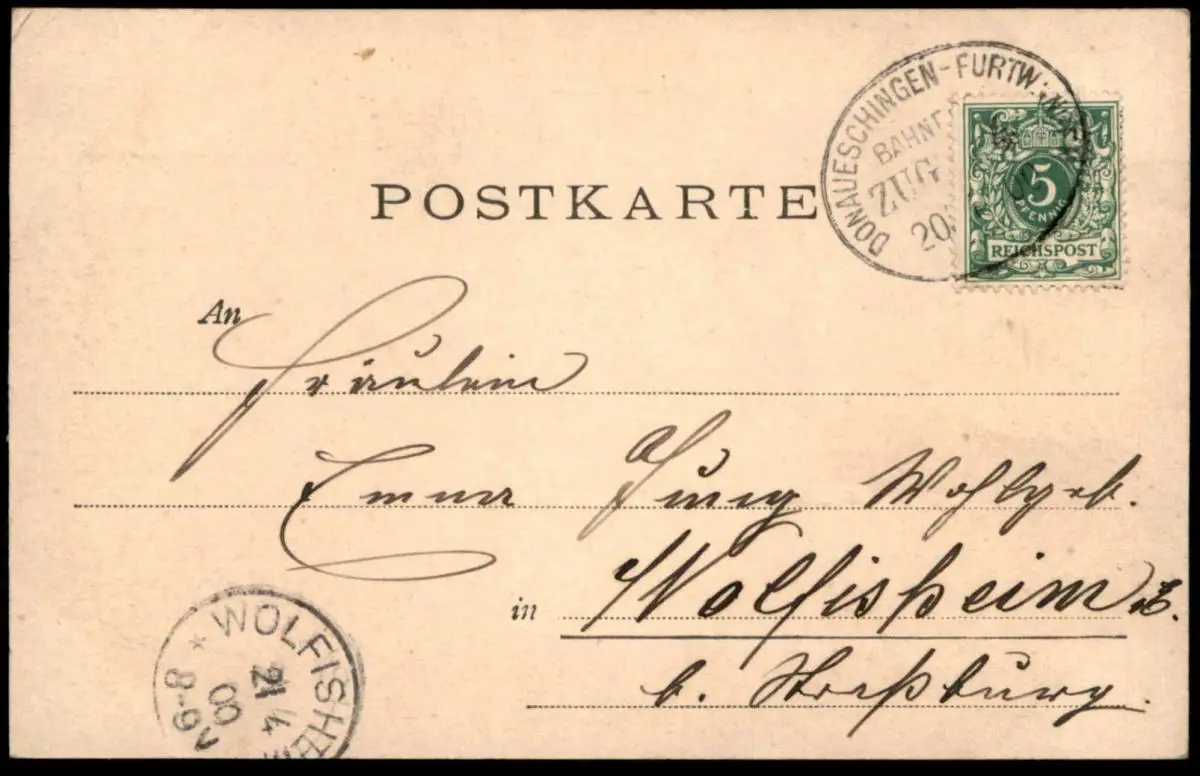 POSTKARTE
DONAUESCHINGEN-FURTW
BAHNP
ZUG
20
5
PFENNIG
REICHSPOST
An
Fräulein
Emma Jung Wohlgeb.
in Wolfisheim
b. Straßburg.
* WOLFISHEIM
21 4
00
8-9V